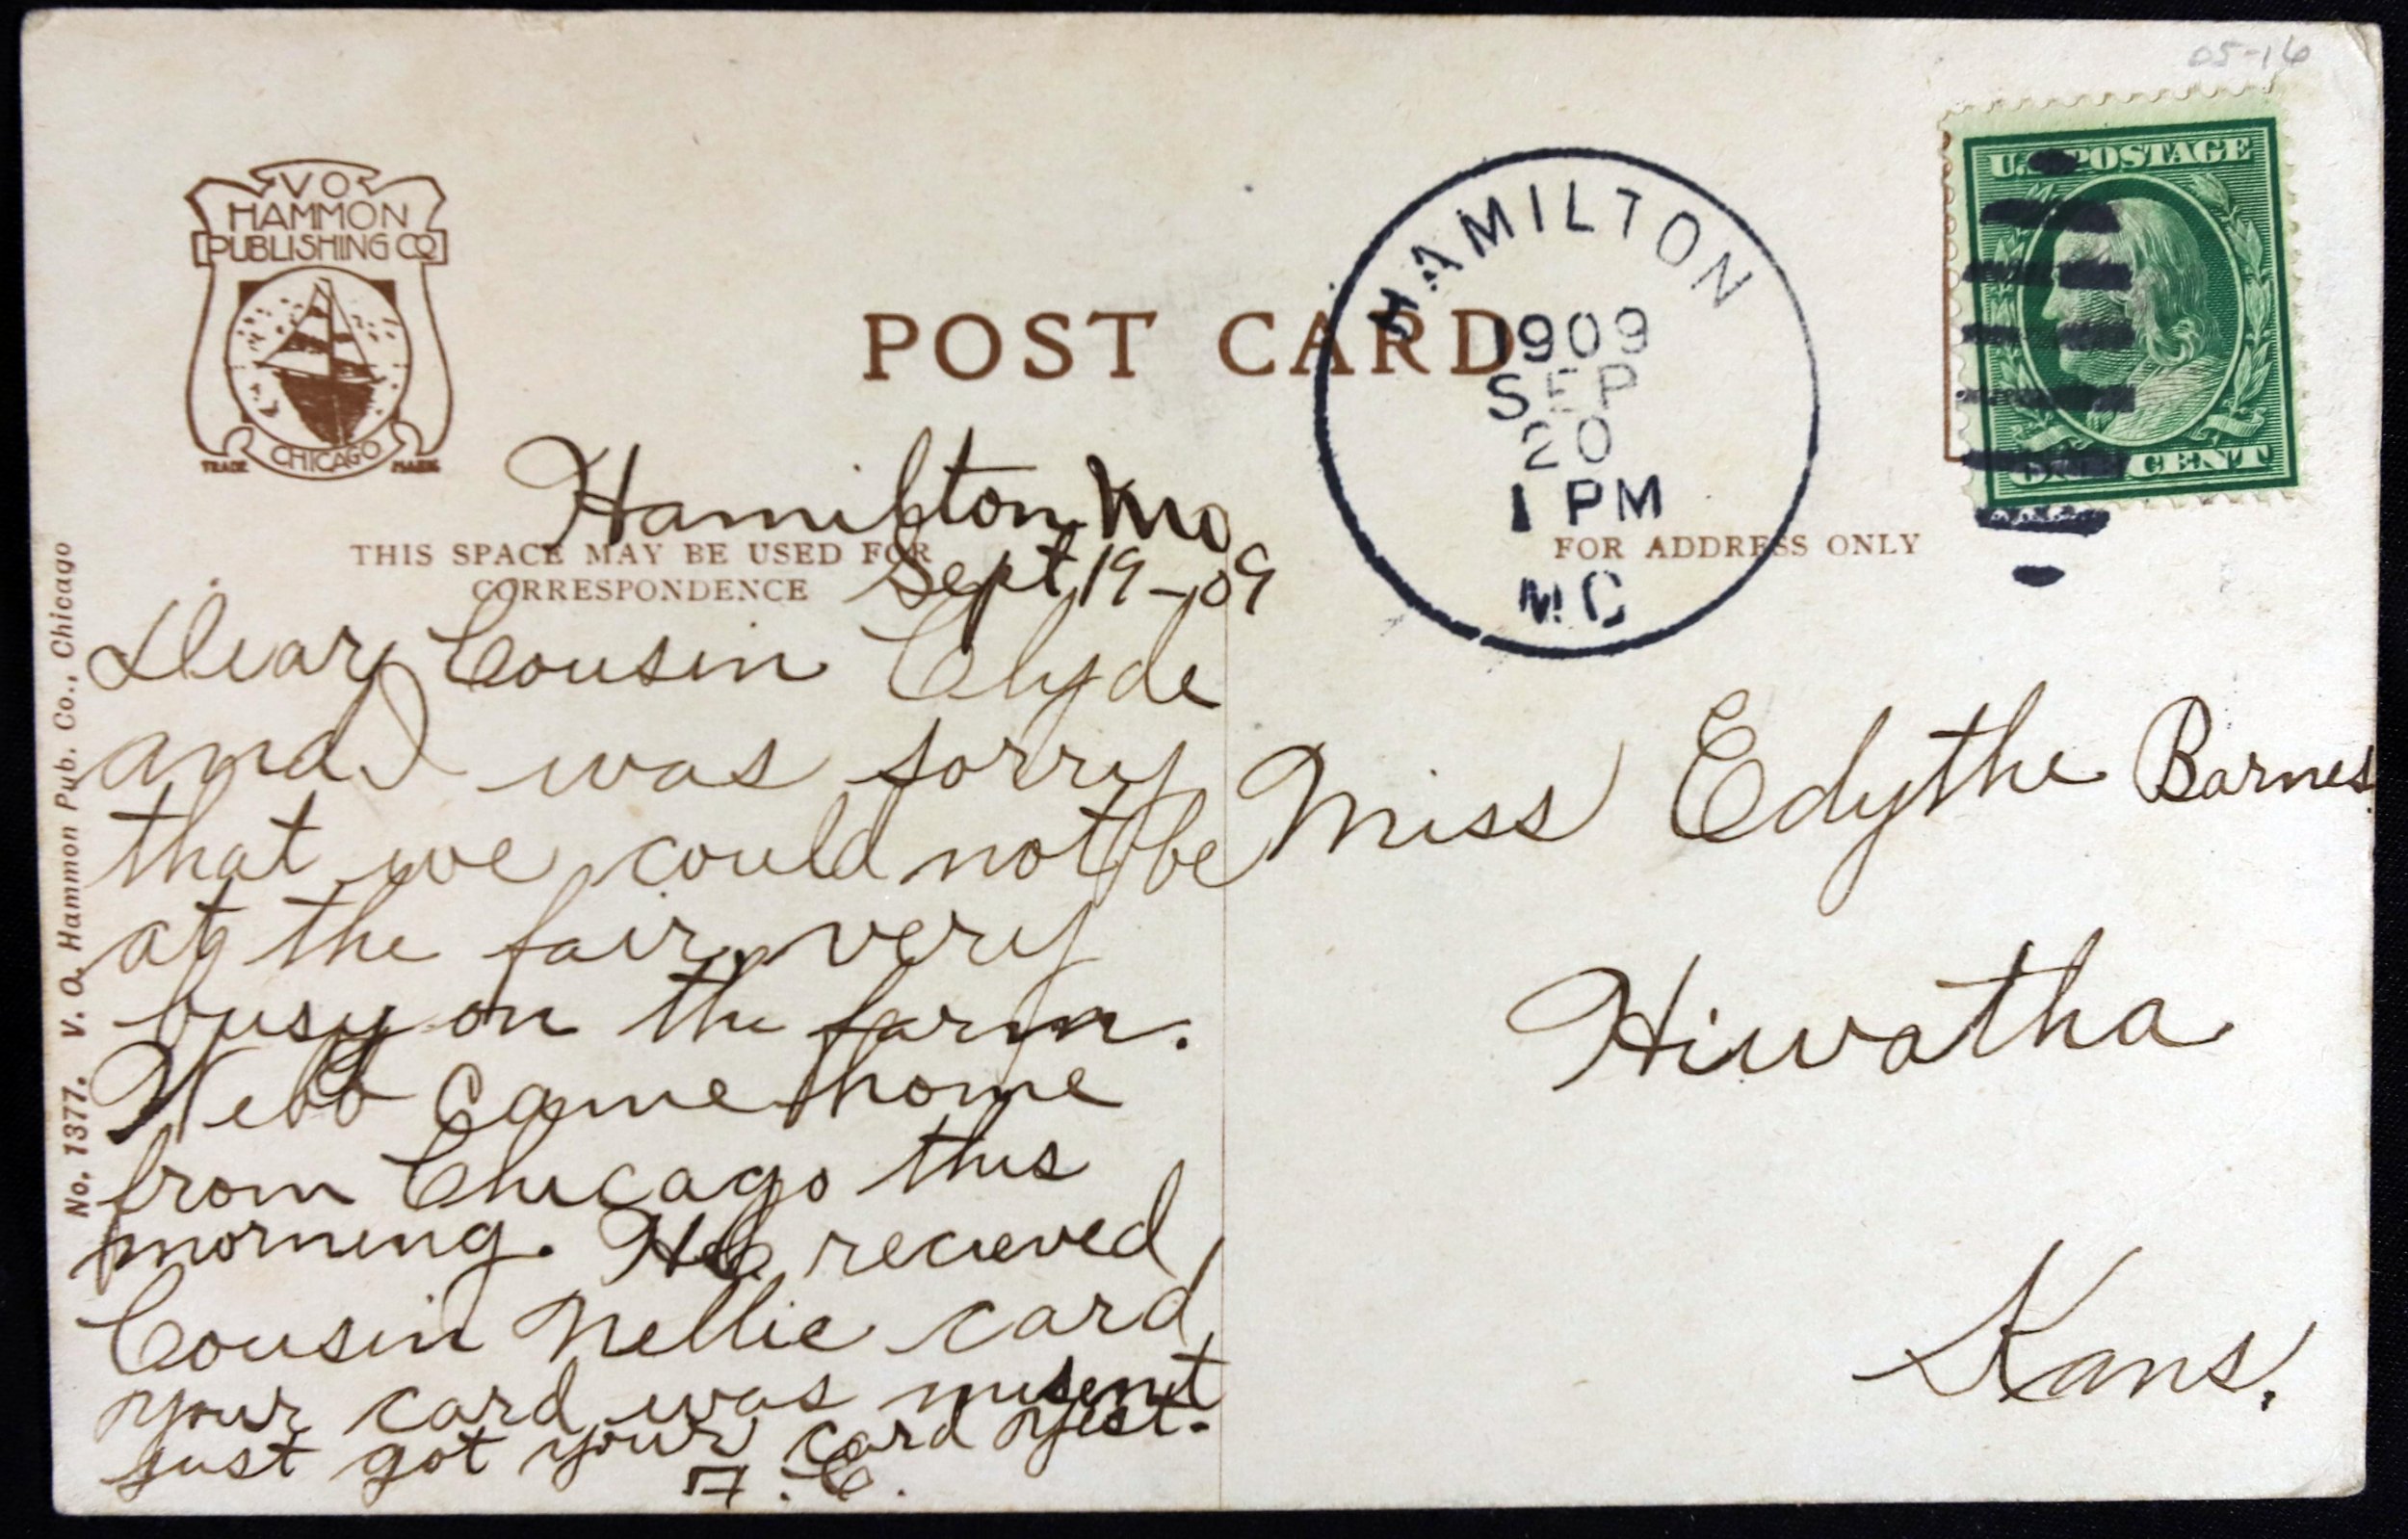 05-16
V O
HAMMON
PUBLISHING CO
CHICAGO
TRADE MARK
POST CARD
HAMILTON
1909
SEP
20
1 PM
MO
U.S. POSTAGE
ONE CENT
THIS SPACE MAY BE USED FOR
CORRESPONDENCE
FOR ADDRESS ONLY
No. 1377. V. O. Hammon Pub. Co., Chicago
Hamilton Mo
Sept, 19-09
Dear Cousin Clyde
and I was sorry
that we could not be
at the fair, very
busy on the farm.
Webb came home
from Chicago this
morning. He recieved
Cousin Nellie card
your card was missent
just got your card yest-
F. C.
Miss Edythe Barnes
Hiwatha
Kans.